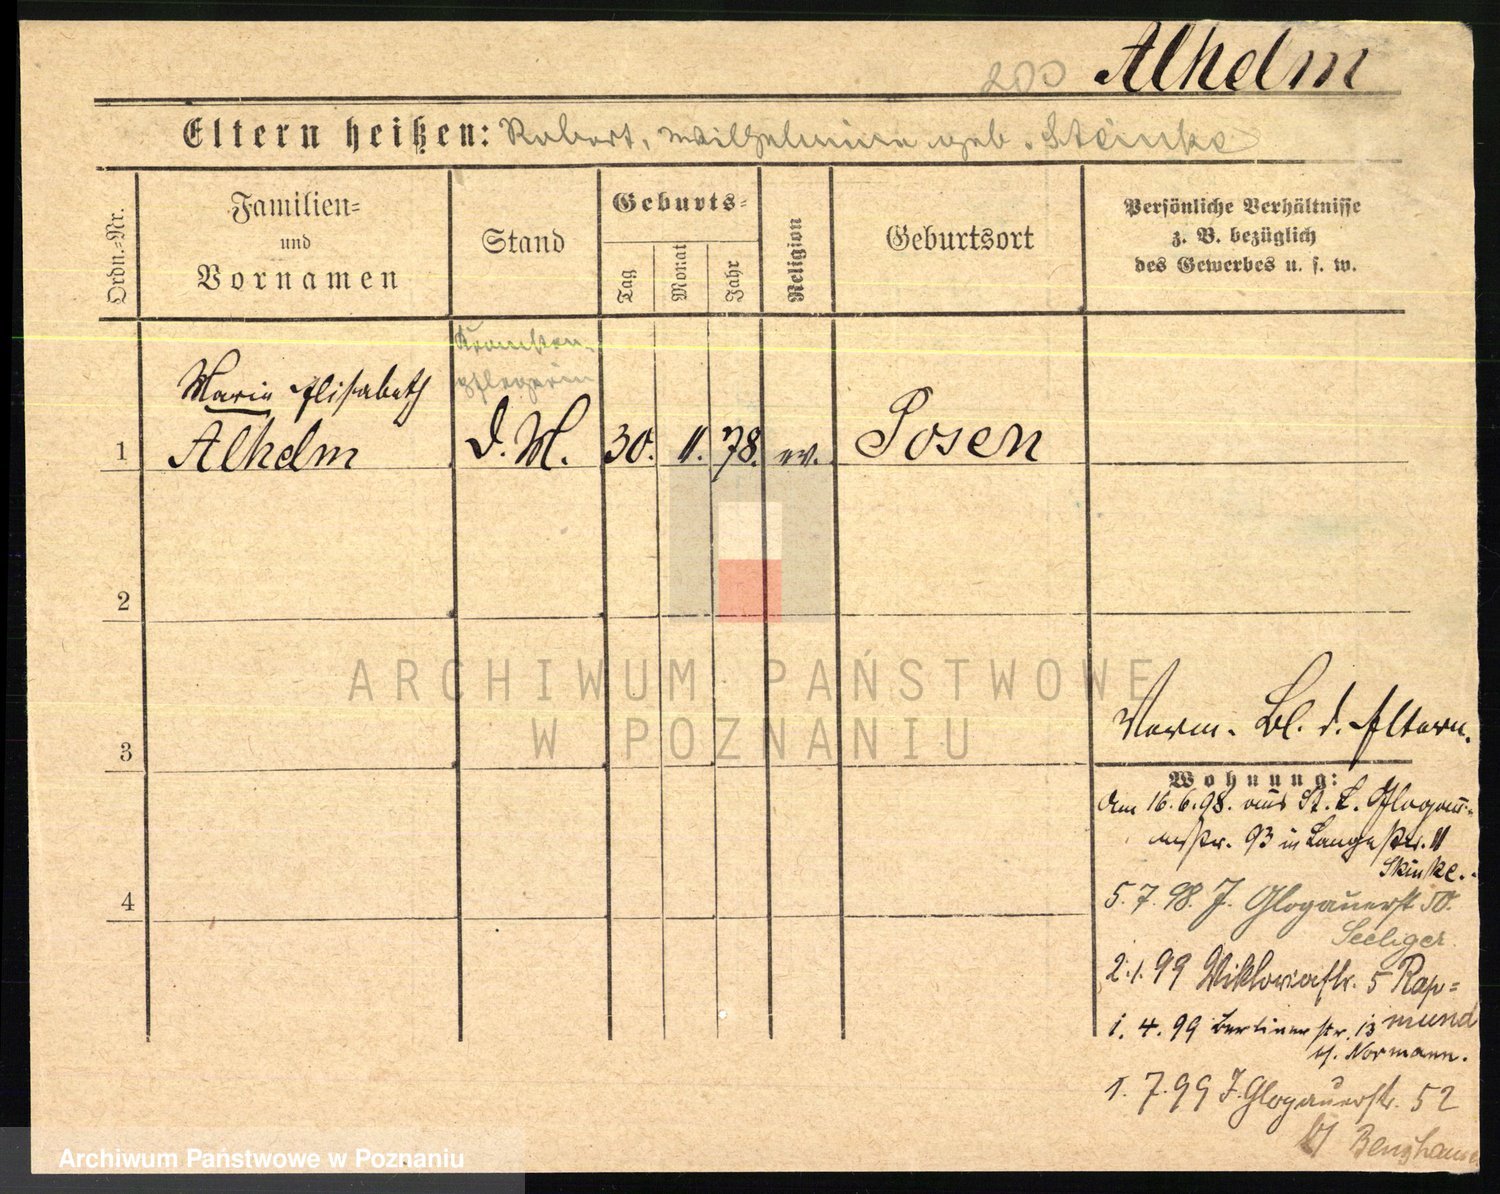 200 Alhelm
Eltern heißen: Robert, Wilhelmine geb. Steinke
Ordn.-Nr.
Familien-
und
Vornamen
Stand
Geburts-
Tag
Monat
Jahr
Religion
Geburtsort
Persönliche Verhältnisse
z. B. bezüglich
des Gewerbes u. s. w.
Kranken-
pflegerin
Marie Elisabeth
1 Alhelm D. M. 30. 11. 78. ev. Posen
2
3
4
ARCHIWUM PAŃSTWOWE
W POZNANIU
Verm. Bl. d. Eltern.
Wohnung:
Am 16.6.98. aus St. L. Glogau-
erstr. 93 in Langestr. 11
5.7.98. J. Glogauerst 50.
Seeliger
2.1.99 Viktoriastr. 5 Rap-
mund
1.4.99 Berlinerstr. 13
Normann.
1.7.99 J. Glogauerstr. 52
Archiwum Państwowe w Poznaniu